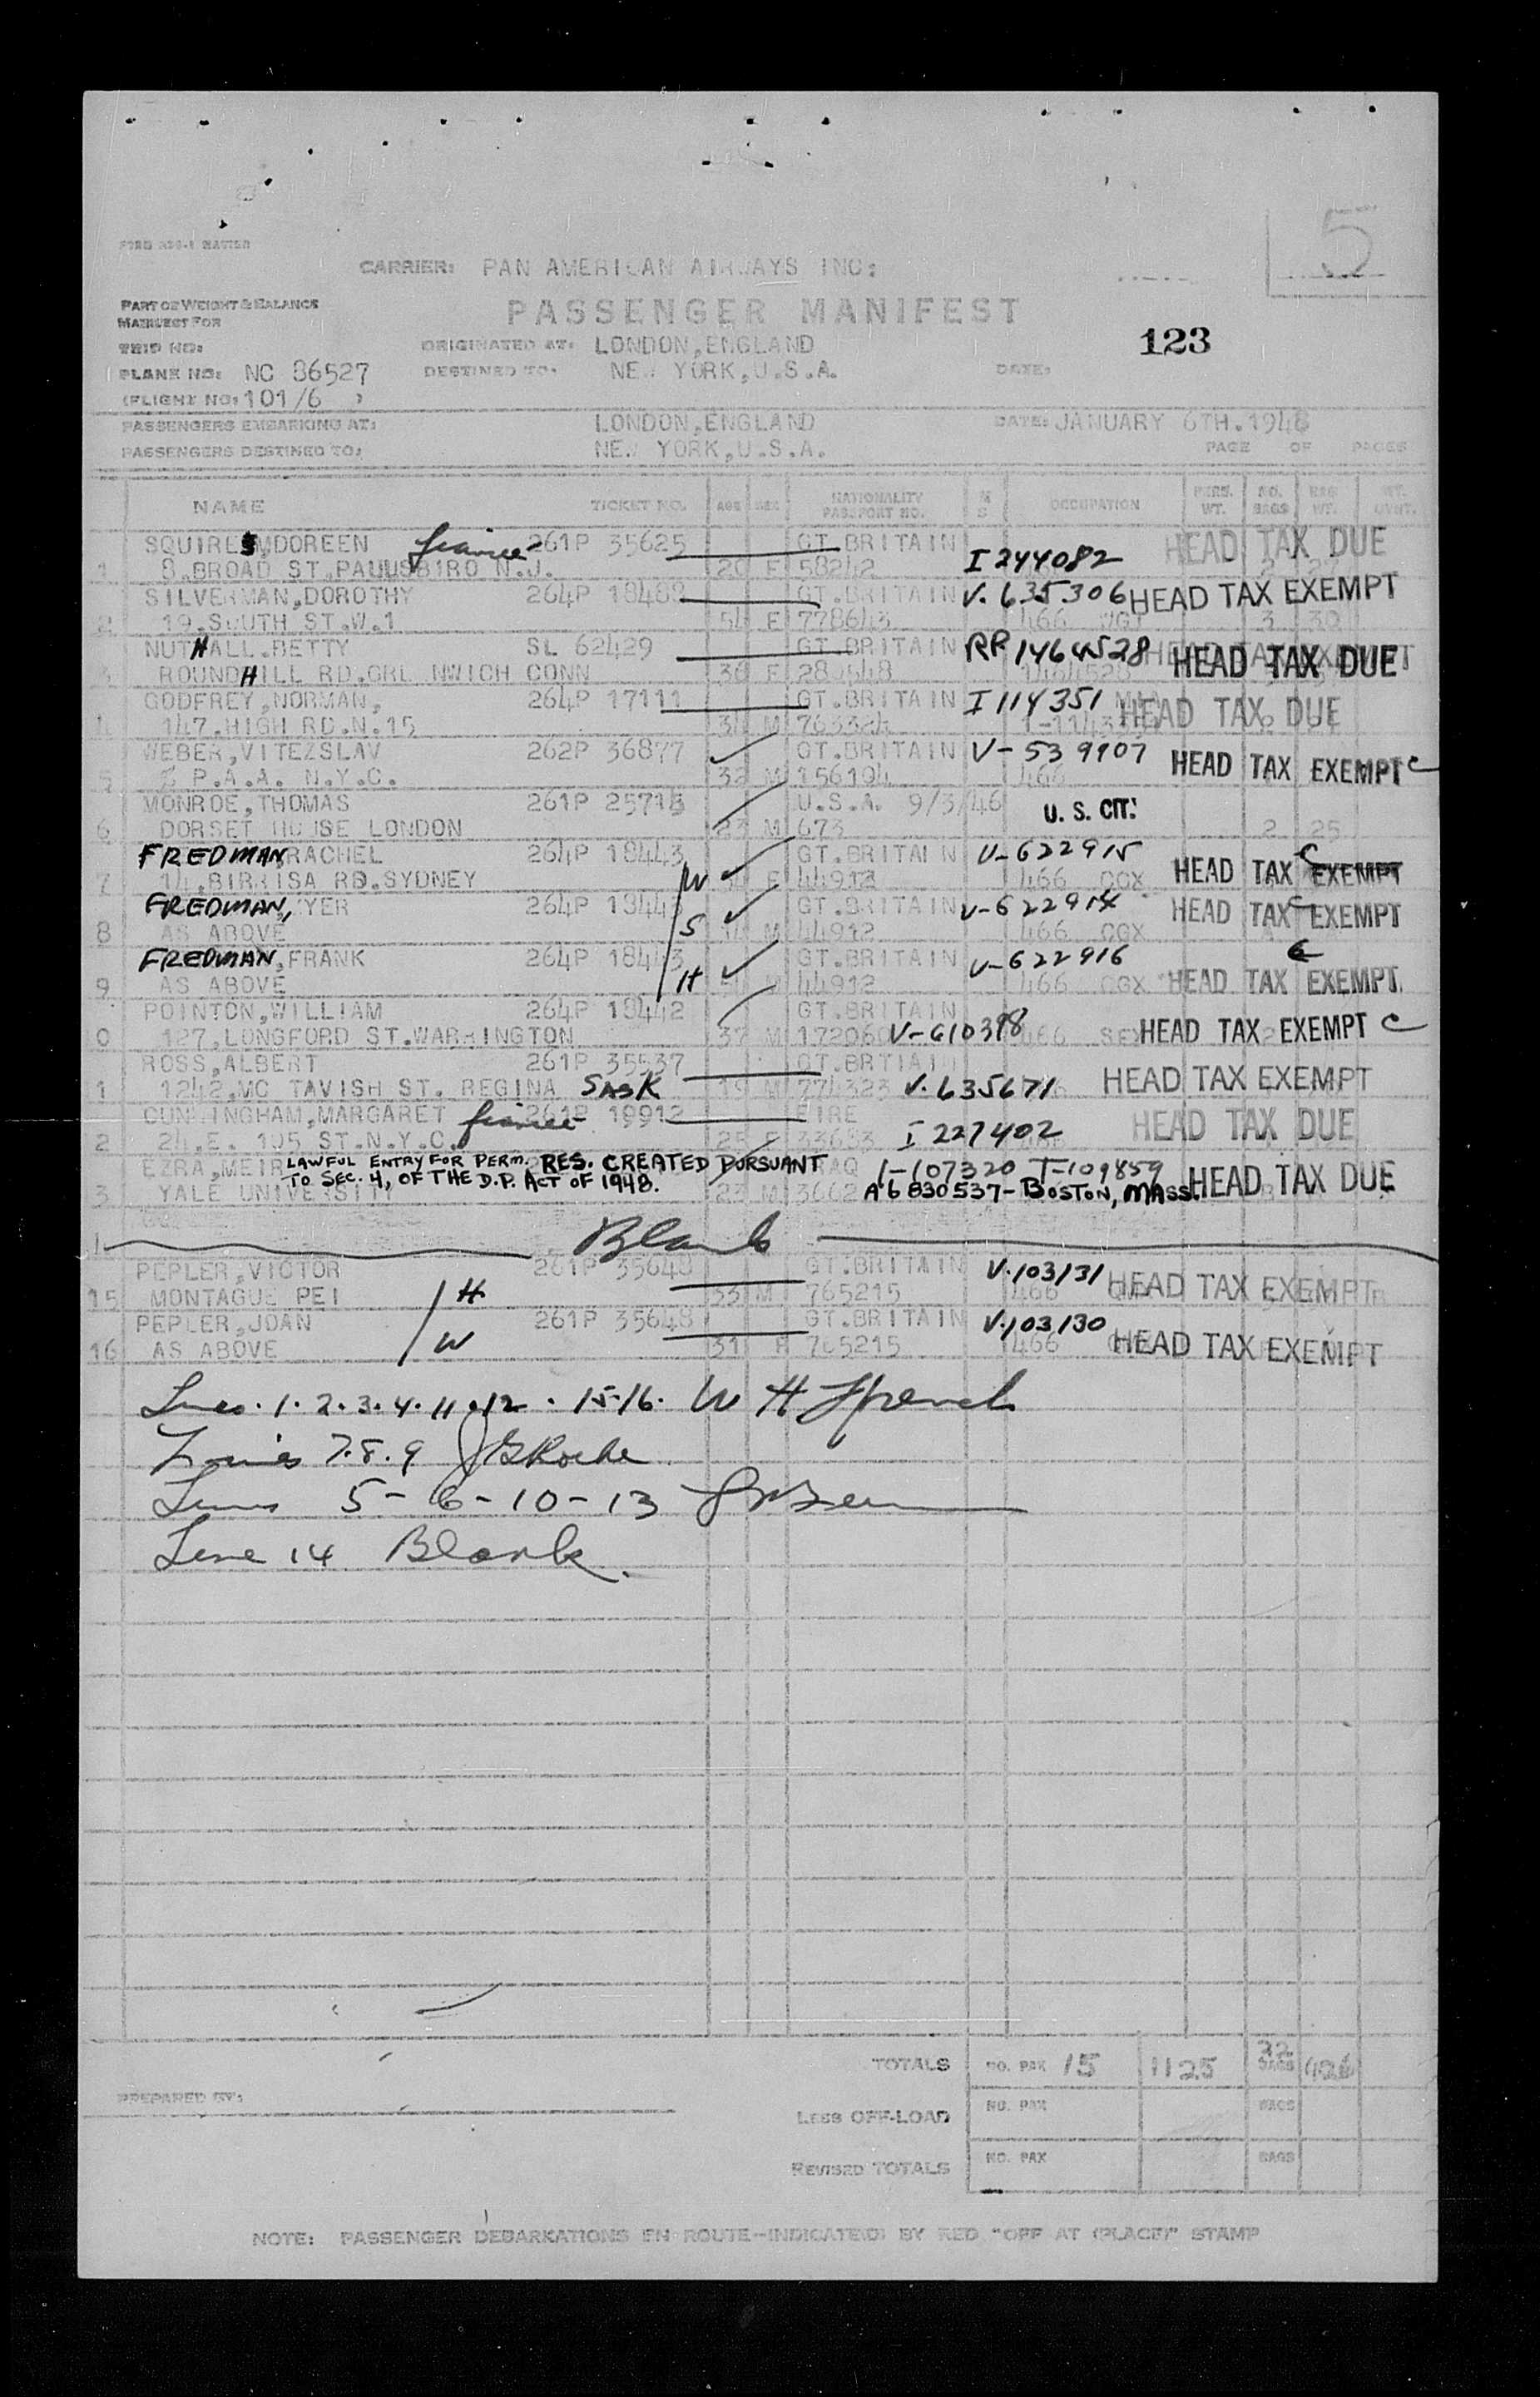 5
FORM
MASTER
CARRIER: PAN AMERICAN AIRWAYS INC:
PART OF WEIGHT & BALANCE
MANIFEST FOR
PASSENGER MANIFEST
123
TRIP NO:
ORIGINATED AT: LONDON,ENGLAND
PLANE NO: NC 86527
DESTINED TO: NEW YORK,U.S.A.
DATE:
(FLIGHT NO: 101/6 )
PASSENGERS EMBARKING AT: LONDON,ENGLAND DATE: JANUARY 6TH.1948
PASSENGERS DESTINED TO: NEW YORK,U.S.A. PAGE OF PAGES
NAME TICKET NO. AGE SEX NATIONALITY PASSPORT NO. M S OCCUPATION PERS. WT. NO. BAGS BAG WT. WT.
SQUIRES DOREEN fiancee 261P 35625 GT.BRITAIN I 244082 HEAD TAX DUE
1 8.BROAD ST. N.J. 20 F 58242 2 27
SILVERMAN,DOROTHY 264P 18488 GT.BRITAIN V. 635306 HEAD TAX EXEMPT
2 19.SOUTH ST.W.1 54 F 778643 466 3 30
NUTHALL.BETTY SL 62429 GT.BRITAIN RP 1464528 HEAD TAX DUE
3 ROUNDHILL RD.GREENWICH CONN 36 F 1464528
GODFREY,NORMAN, 264P 17111 GT.BRITAIN I 114351 HEAD TAX DUE
4 147.HIGH RD.N.15 34 M 763324
WEBER,VITEZSLAV 262P 36877 GT.BRITAIN V-539907 HEAD TAX EXEMPT C
5 % P.A.A. N.Y.C. 32 M 156194 466
MONROE,THOMAS 261P 25718 U.S.A. 9/3/46 U. S. CIT.
6 DORSET HOUSE LONDON 23 M 673 2 25
FREDMAN,RACHEL 264P 18443 GT.BRITAIN V-622915 HEAD TAX EXEMPT C
7 14.BIRRISA RD.SYDNEY W F 44912 466
FREDMAN, 264P 18443 GT.BRITAIN V-622914 HEAD TAX EXEMPT C
8 AS ABOVE S 14 M 44912 466
FREDMAN,FRANK 264P 18443 GT.BRITAIN V-622916 HEAD TAX EXEMPT C
9 AS ABOVE H M 44912 466
POINTON,WILLIAM 264P 18442 GT.BRITAIN
0 127,LONGFORD ST.WARRINGTON 37 M 172060 V-610398 466 HEAD TAX EXEMPT C
ROSS,ALBERT 261P 35537 GT.BRTIAIN
1 1242.MC TAVISH ST. REGINA SASK 19 M 774323 V.635671 HEAD TAX EXEMPT
CUNNINGHAM,MARGARET fiancee 261P 19912 EIRE
2 24.E. 105 ST.N.Y.C. 25 F 33683 I 227402 HEAD TAX DUE
EZRA,MEIR LAWFUL ENTRY FOR PERM. RES. CREATED PURSUANT IRAQ I-107320 T-109859 HEAD TAX DUE
TO SEC. 4, OF THE D.P. ACT OF 1948.
3 YALE UNIVERSITY 23 M A6 830537-BOSTON, MASS.
Blank
PEPLER,VICTOR 261P 35648 GT.BRITAIN V.103131 HEAD TAX EXEMPT
15 MONTAGUE PEI H 33 M 765215 466
PEPLER,JOAN 261P 35648 GT.BRITAIN V.103130 HEAD TAX EXEMPT
16 AS ABOVE W 31 F 765215 466
Lines . 1. 2. 3. 4. 11. 12 . 15-16. W H French
Lines 7. 8. 9 J G Roche
Lines 5-6-10-13
Line 14 Blank.
TOTALS NO. PAX 15 1125 32 BAGS 426
PREPARED BY:
LESS OFF-LOAD NO. PAX BAGS
REVISED TOTALS NO. PAX BAGS
NOTE: PASSENGER DEBARKATIONS EN ROUTE-INDICATED BY RED "OFF AT (PLACE)" STAMP